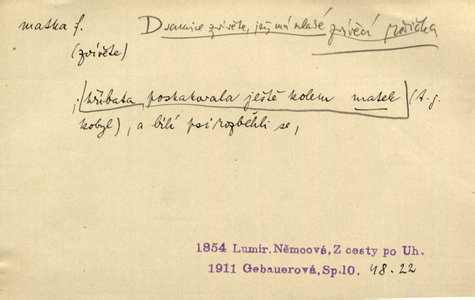 matka f. Samice zvířete, jež má mladé, zvířecí rodička
(zvíře)
hříbata poskakovala ještě kolem matek (t. j.
kobyl), a bílí psi rozběhli se,
1854 Lumír. Němcová, Z cesty po Uh.
1911 Gebauerová, Sp.10. 48.22